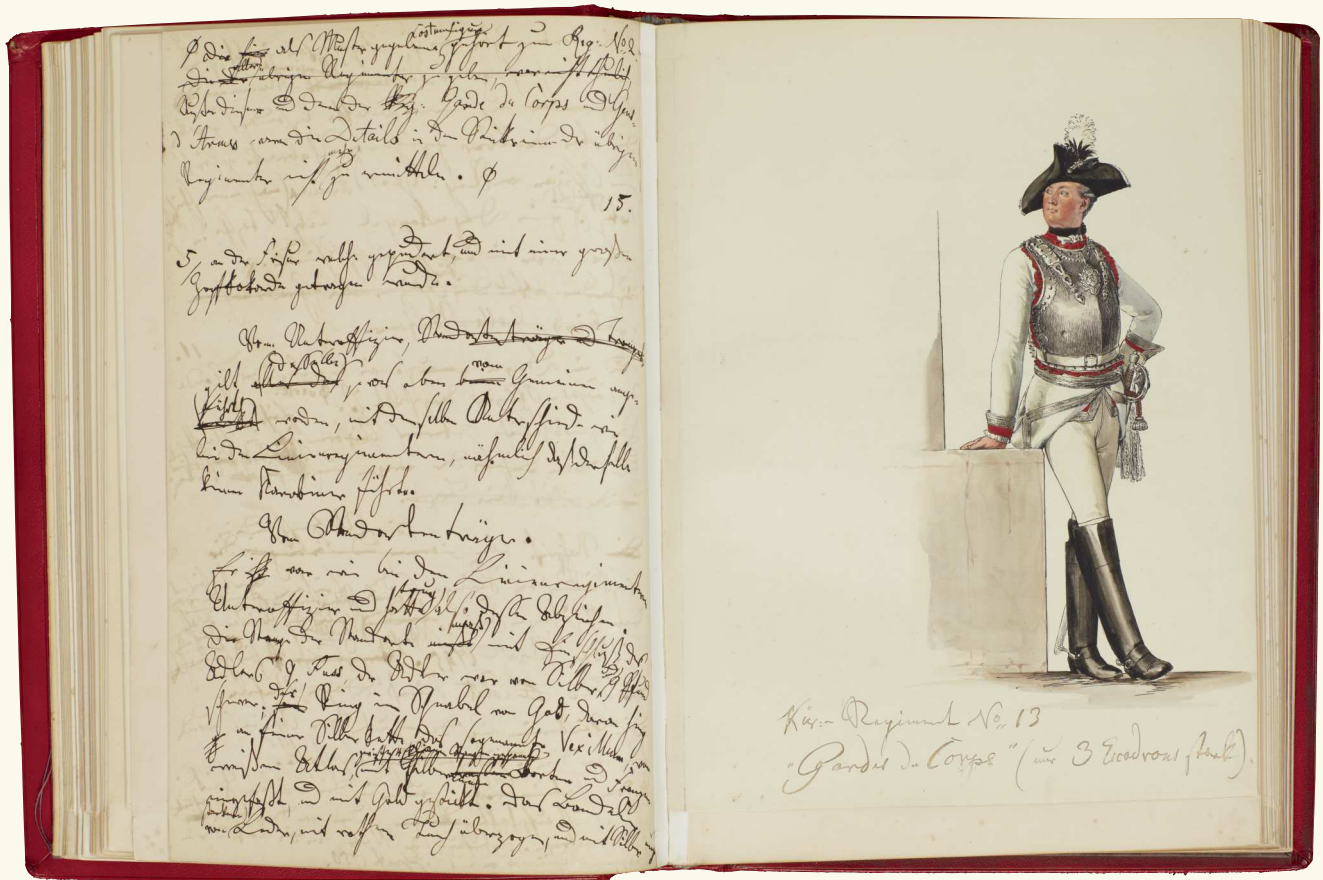 als Muster gegebene gehört zum Reg: No 2
übrigen Regimenter zu geben, war nicht
Außer diesem und dem der Reg: Garde du Corps und Gens
d'Armes waren die Details in den der übrigen
Regimenter nicht zu ermitteln.
15.
5, an der Frisur welche gepudert, und mit einer großen
Zopfkokarde getragen wurde.
Vom Unteroffizier, Standartenträger und Trompeter
gilt dasselbe, was oben vom Gemeinen ange-
führt worden, mit demselben Unterschiede wie
bei den Linienregimentern, nähmlich daß derselbe
keinen Karabiner führte.
Vom Standartenträger.
Er war wie bei den Linienregimentern
Unteroffizier und trug also dessen Abzeichen
die Stange der Standarte mit
Adlers 9 Fuss der Adler war von Silber, 9 Pfund
schwer; der Ring im Schnabel von Gold, daran hing
an einer Silber Kette das sogenannte Vexillum, von
weißem Atlas, mit Borten und Franzen
eingefaßt, und mit Gold gestickt. Das Bandelier
von Leder, mit rothem Tuch überzogen, und mit Silber
Kür: Regiment No. 13
"Gardes du Corps" (nur 3 Escadrons stark).